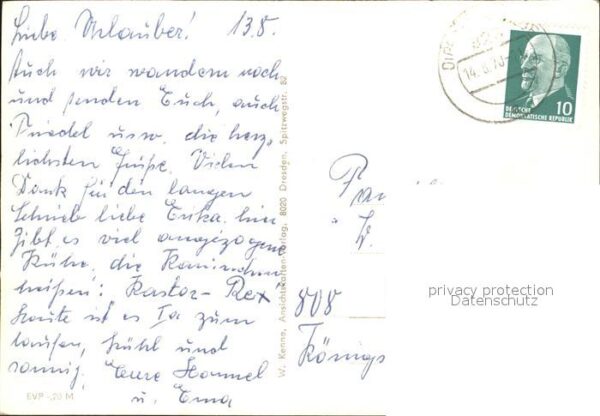 Liebe Urlauber! 13.8.
Auch wir wandern noch
und senden Euch, auch
Friedel usw. die herz-
lichsten Grüße. Vielen
Dank für den langen
Schrieb liebe Erika. hier
gibt es viel angezogene
Kühe, die Kaninchen
heißen: Kastor-Rex
heute ist es Ia zum
laufen, kühl und
sonnig. Eure Hannel
u. Erna
EVP -,20 M
W. Kenne, Ansichtskarten-Verlag, 8020 Dresden, Spitzwegstr. 82
10
DEUTSCHE
DEMOKRATISCHE REPUBLIK
Fam
808
Königs
privacy protection
Datenschutz